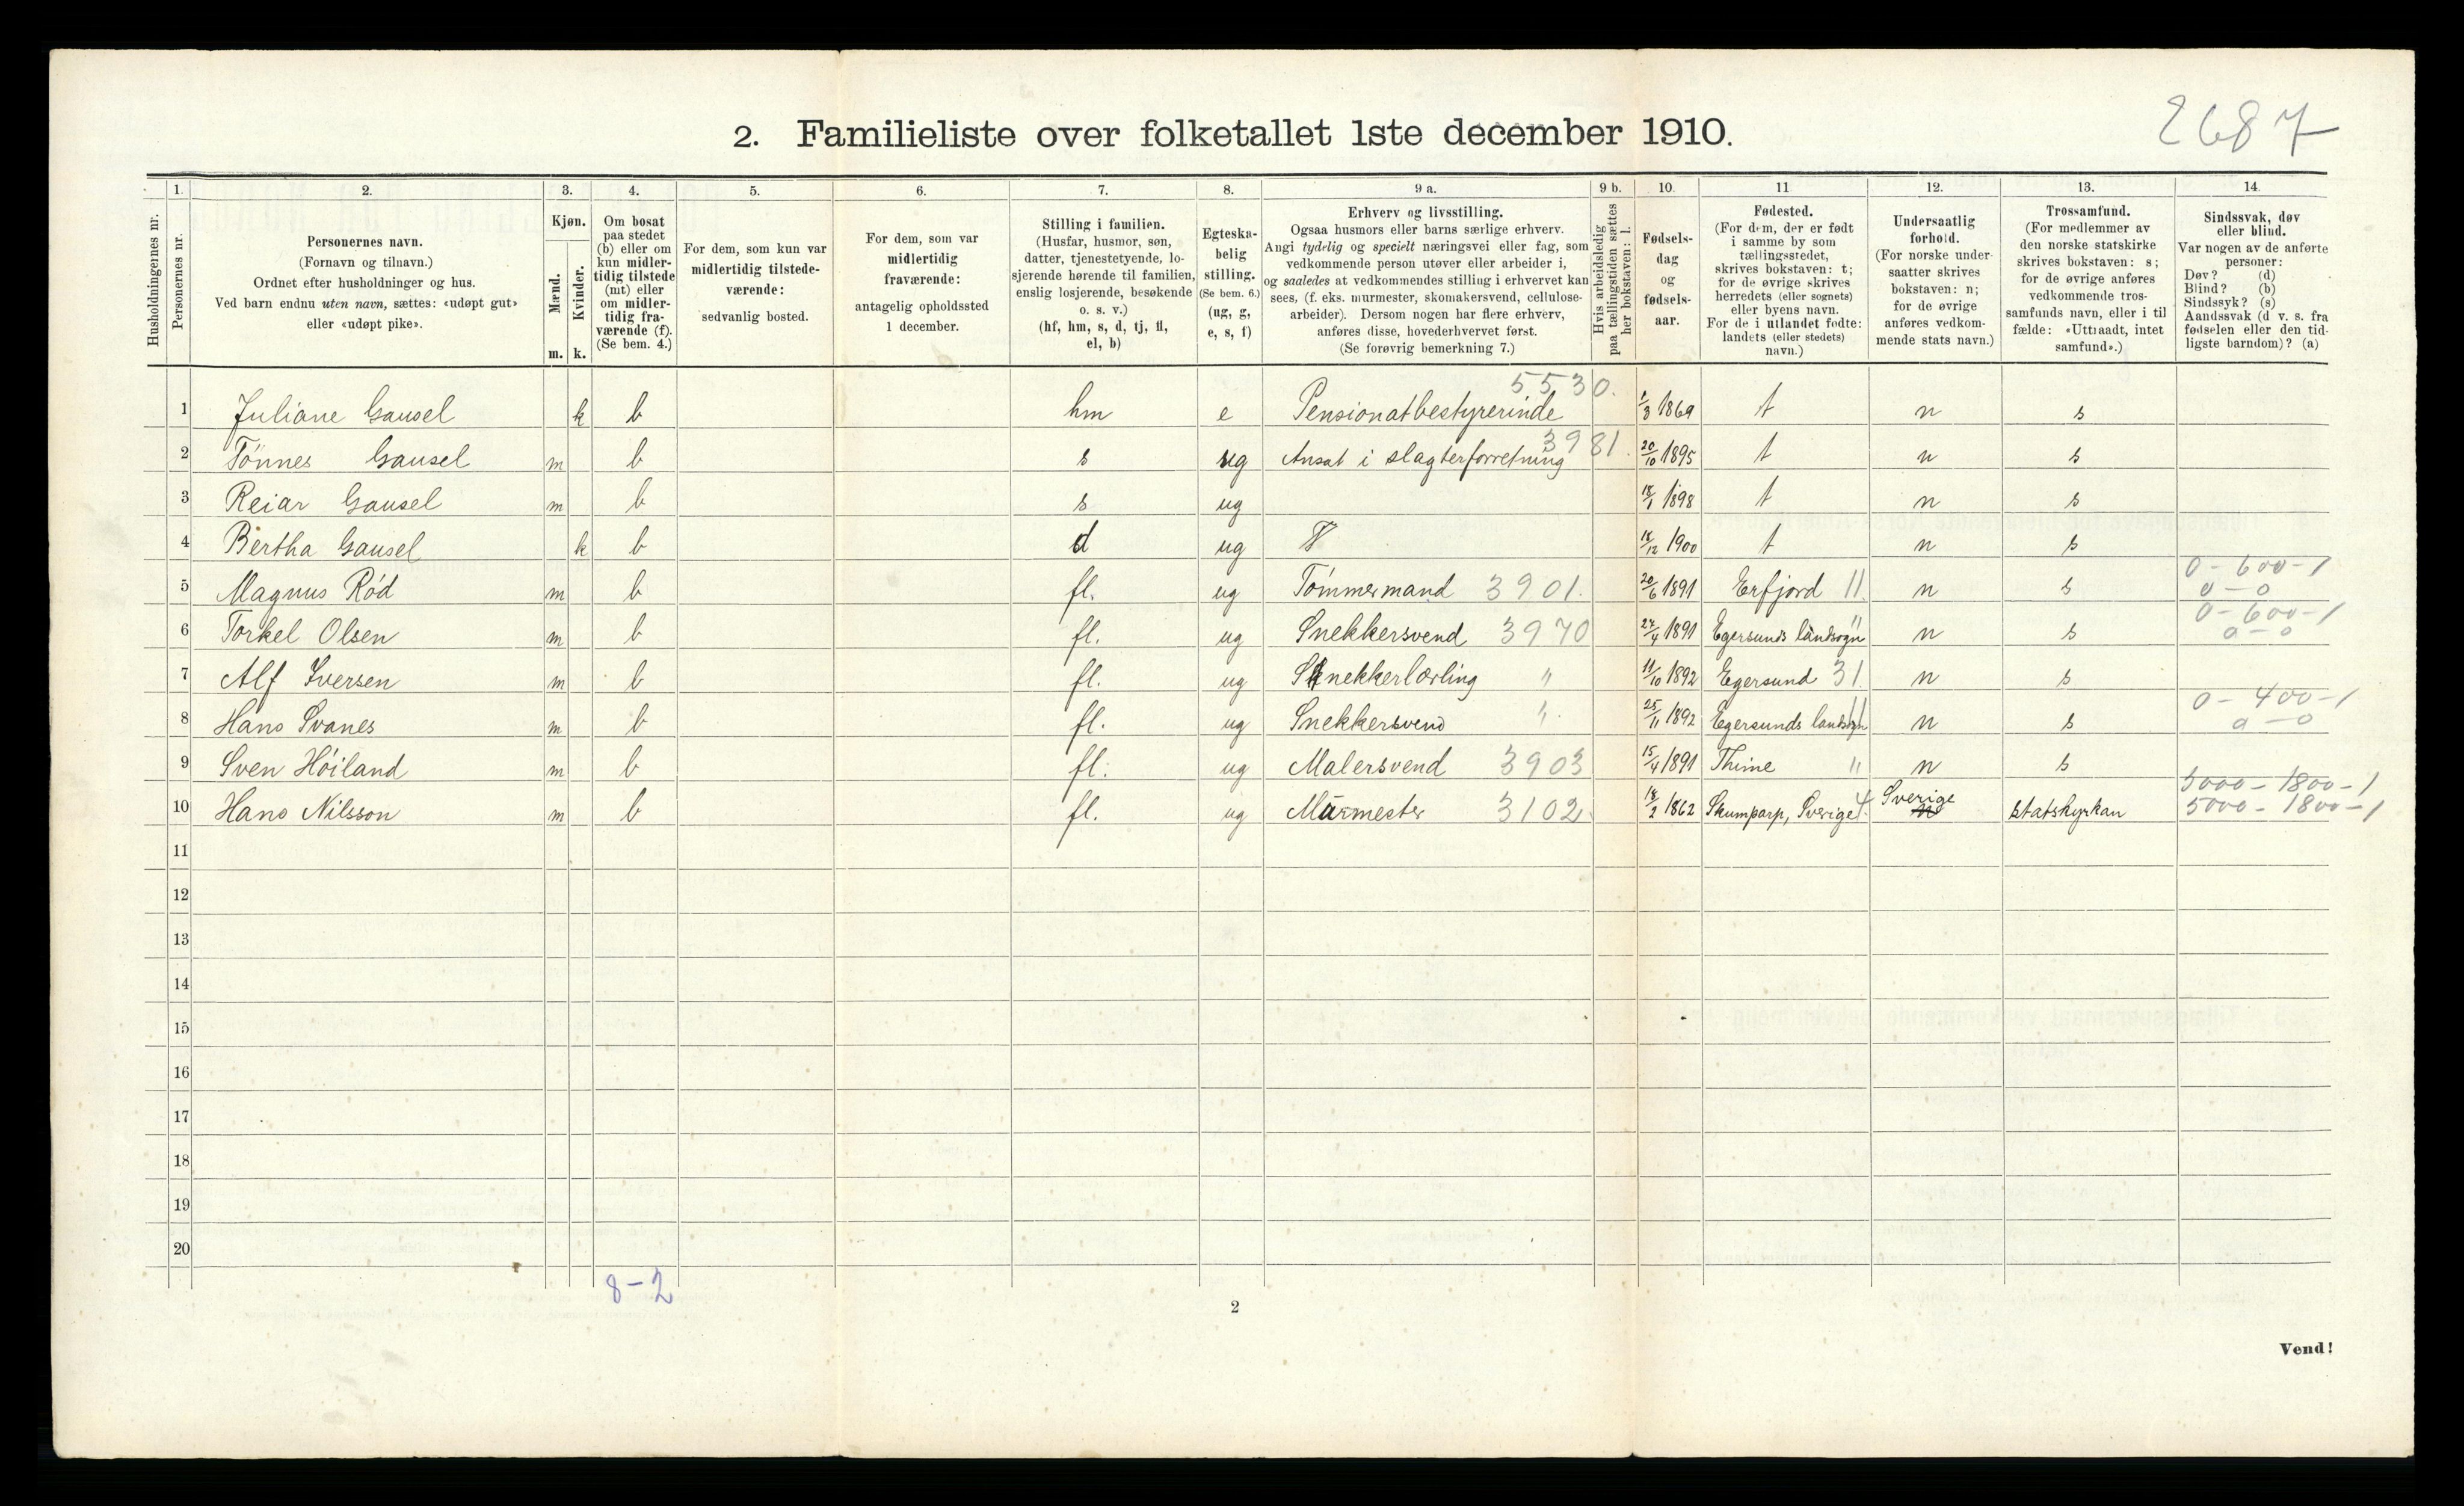 2687
2. Familieliste over folketallet 1ste december 1910.
Husholdningernes nr.
1.
Personernes nr.
2.
Personernes navn.
(Fornavn og tilnavn.)
Ordnet efter husholdninger og hus.
Ved barn endnu uten navn, sættes: «udøpt gut»
eller «udøpt pike».
3.
Kjøn.
Mænd.
Kvinder.
m. k.
4.
Om bosat
paa stedet
(b) eller om
kun midler-
tidig tilstede
(mt) eller
om midler-
tidig fra-
værende (f).
(Se bem. 4.)
5.
For dem, som kun var
midlertidig tilstede-
værende:
sedvanlig bosted.
6.
For dem, som var
midlertidig
fraværende:
antagelig opholdssted
1 december.
7.
Stilling i familien.
(Husfar, husmor, søn,
datter, tjenestetyende, lo-
sjerende hørende til familien,
enslig losjerende, besøkende
o. s. v.)
(hf, hm, s, d, tj, fl,
el, b)
8.
Egteska-
belig
stilling.
(Se bem. 6.)
(ug, g,
e, s, f)
9 a.
Erhverv og livsstilling.
Ogsaa husmors eller barns særlige erhverv.
Angi tydelig og specielt næringsvei eller fag, som
vedkommende person utøver eller arbeider i,
og saaledes at vedkommendes stilling i erhvervet kan
sees, (f. eks. murmester, skomakersvend, cellulose-
arbeider). Dersom nogen har flere erhverv,
anføres disse, hovederhvervet først.
(Se forøvrig bemerkning 7.)
9 b.
Hvis arbeidsledig
paa tællingstiden sættes
her bokstaven: l.
10.
Fødsels-
dag
og
fødsels-
aar.
11
Fødested.
(For dem, der er født
i samme by som
tællingsstedet,
skrives bokstaven: t;
for de øvrige skrives
herredets (eller sognets)
eller byens navn.
For de i utlandet fødte:
landets (eller stedets)
navn.)
12.
Undersaatlig
forhold.
(For norske under-
saatter skrives
bokstaven: n;
for de øvrige
anføres vedkom-
mende stats navn.)
13.
Trossamfund.
(For medlemmer av
den norske statskirke
skrives bokstaven: s;
for de øvrige anføres
vedkommende tros-
samfunds navn, eller i til
fælde: «Uttraadt, intet
samfund».)
14.
Sindssvak, døv
eller blind.
Var nogen av de anførte
personer:
Døv? (d)
Blind? (b)
Sindssyk? (s)
Aandssvak (d v. s. fra
fødselen eller den tid-
ligste barndom)? (a)
1 Juliane Gausel k b hm e Pensionatbestyrerinde 5530. 1/3 1869 t n s
2 Tönnes Gausel m b s ug Ansat i slagterforretning 3981. 20/10 1895 t n s
3 Reiar Gausel m b s ug 18/1 1898 t n s
4 Bertha Gausel k b d ug 18/12 1900 t n s
5 Magnus Röd m b fl. ug Tömmermand 3901. 20/6 1891 Erfjord 11. n s 0-600-1 0-0
6 Torkel Olsen m b fl. ug Snekkersvend 3970 27/4 1891 Egersunds landsogn " n s 0-600-1 0-0
7 Alf Iversen m b fl. ug Snekkerlærling " 11/10 1892 Egersund 31. n s
8 Hans Svanes m b fl. ug Snekkersvend " 25/11 1892 Egersunds landsogn n s 0-400-1 0-0
9 Sven Höiland m b fl. ug Malersvend 3903 15/4 1891 Thime " n s
10 Hans Nilsson m b fl. ug Murmester 3102. 18/2 1862 Skumparp, Sverige Sverige statskyrkan 5000-1800-1 5000-1800-1
11
12
13
14
15
16
17
18
19
20
8-2
2
Vend!